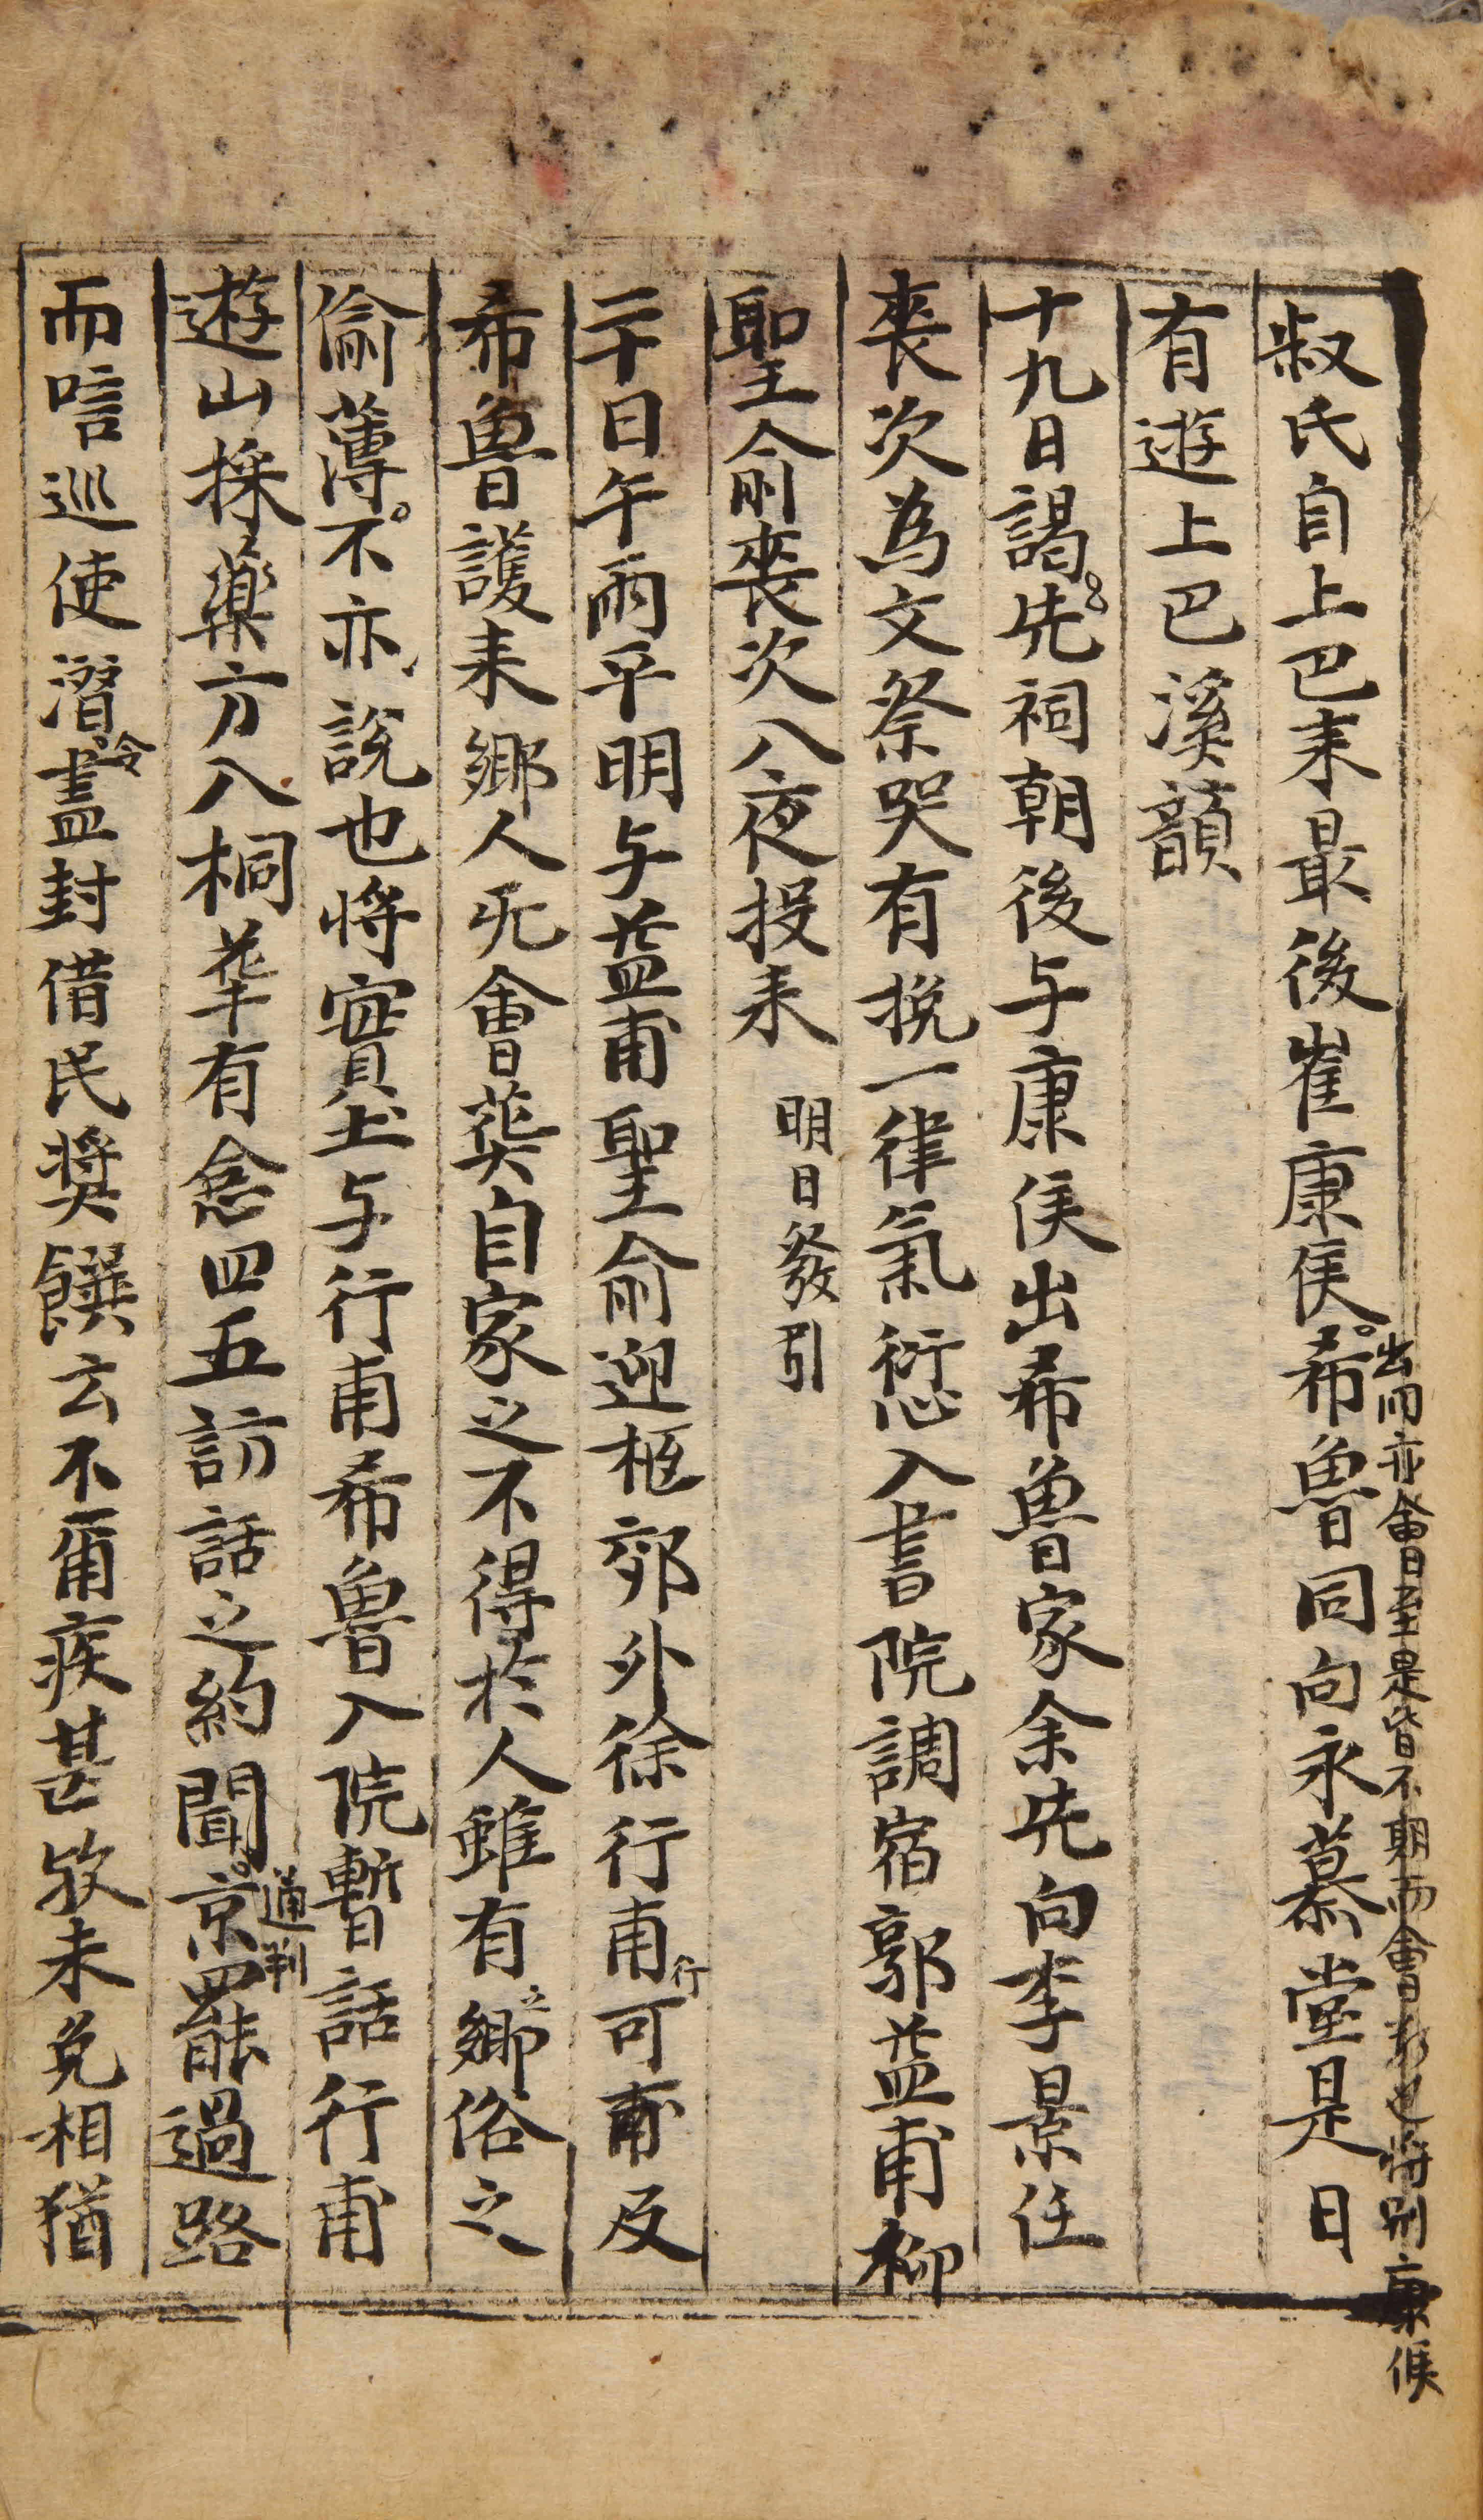 叔氏自上巴來最後崔康侯希魯同向永慕堂是日
出同亦會至是皆不期而會 將別康侯
有遊上巴溪韻
十九日謁先祠朝後与康侯出希魯家余先向李景任
喪次為文祭哭有挽一律氣愆入書院調宿郭益甫柳
聖俞喪次入夜投来 明日發引
二十日午雨平明与益甫聖俞迎柩郊外徐行甫行可甫及
希魯護来鄉人旡會葬自家之不得於人雖有鄉俗之
偷薄不亦說也將實土与行甫希魯入院暫話行甫
遊山採藥方入桐華有念四五訪話之約聞京通判罷過路
而唁巡使潛令盡封借民獎饌云不甭疾甚放未免相猶